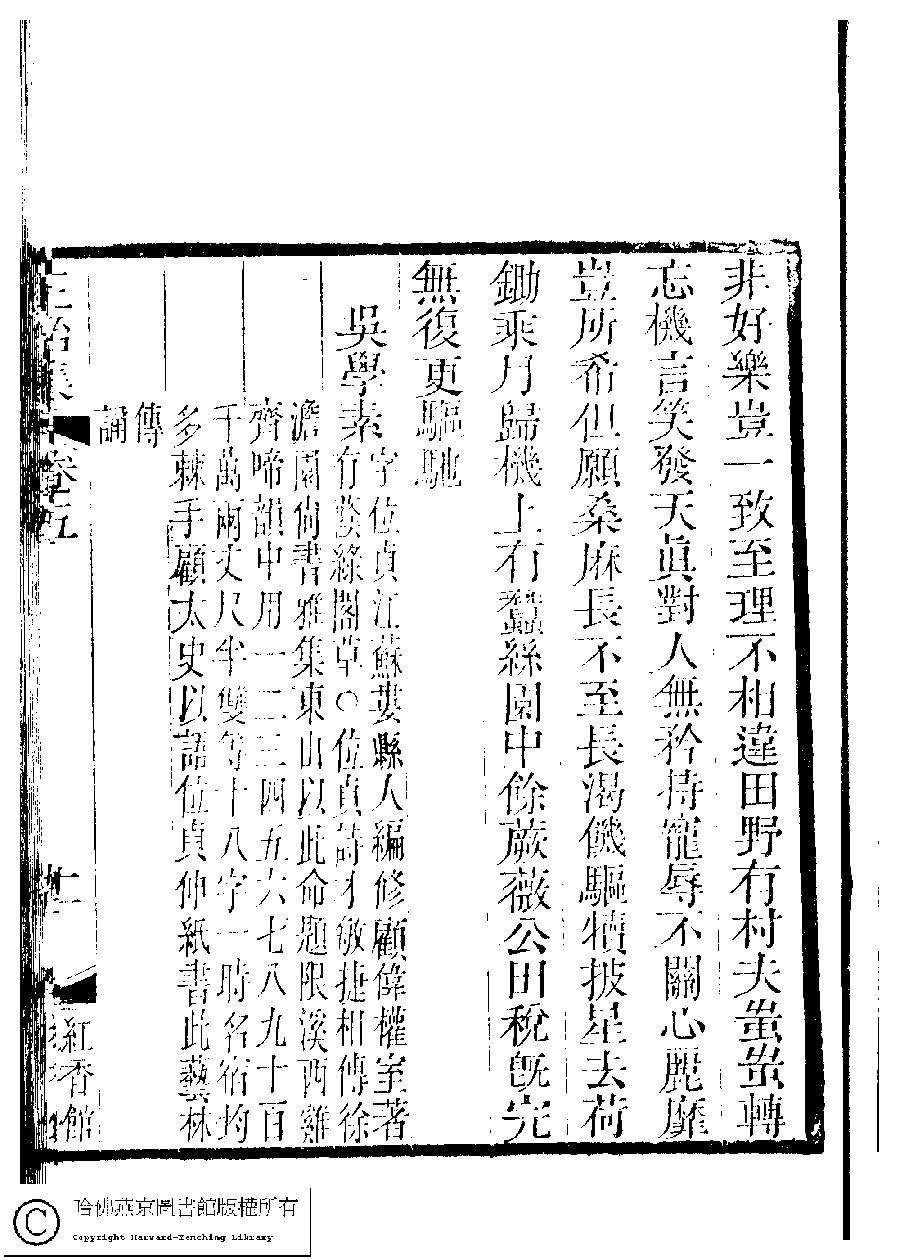 非好樂豈一致至理不相違田野有村夫蚩蚩轉
忘機言笑發天眞對人無矜持寵辱不關心麗靡
豈所希但願桑麻長不至長渴饑驅犢披星去荷
鋤乘月歸機上有蠶絲園中餘蕨薇公田稅旣完
無復更驅馳
吳學素
字位貞江蘇婁縣人編修顧偉權室著
有蕿綠閣草○位貞詩才敏捷相傳徐
澹園尙書雅集東山以此命題限溪西雞
齊啼韻中用一二三四五六七八九十百
千萬兩丈尺半雙等十八字一時名宿均
多棘手顧太史以語位貞伸紙書此藝林
傳
誦
正始集
卷五
紅香館
哈佛燕京圖書館版權所有
Copyright Harvard-Yenching Library